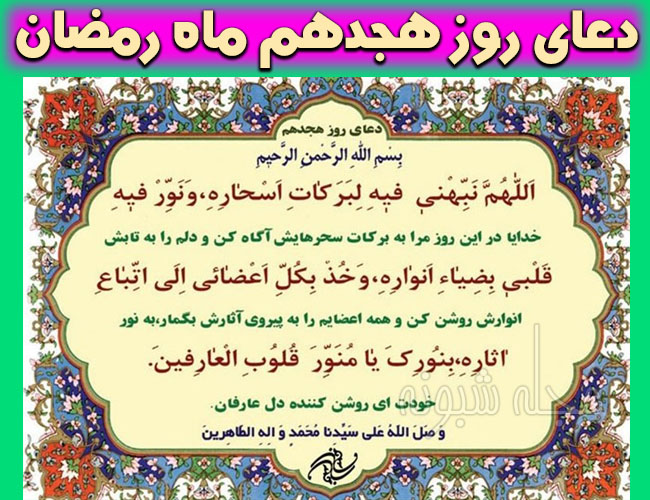 دعای روز هجدهم ماه رمضان
دعای روز هجدهم
بِسْمِ اللهِ الرَّحْمنِ الرَّحیمِ
اَللّهُمَّ نَبِّهْنی فیهِ لِبَرَکاتِ اَسْحارِهِ،وَنَوِّرْ فیهِ
خدایا در این روز مرا به برکات سحرهایش آگاه کن و دلم را به تابش
قَلْبی بِضِیاءِ اَنوارِهِ،وَخُذْ بِکُلِّ اَعْضائی اِلَی اتِّباعِ
انوارش روشن کن و همه اعضایم را به پیروی آثارش بگمار،به نور
اثارِهِ،بِنُورِکَ یا مُنَوِّرَ قُلُوبِ الْعارِفینَ.
خودت ای روشن کننده دل عارفان.
وَ صَلَ اللهُ عَلی سَیِّدِنا مُحَمَدٍ وَ الِهِ الطّاهِرینَ